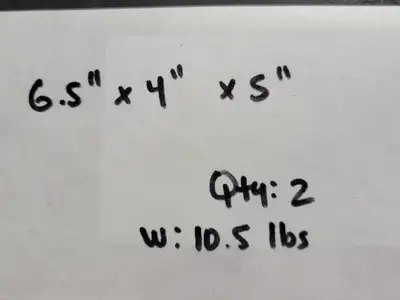 6.5" x 4" x 5"
Qty: 2
W: 10.5 lbs